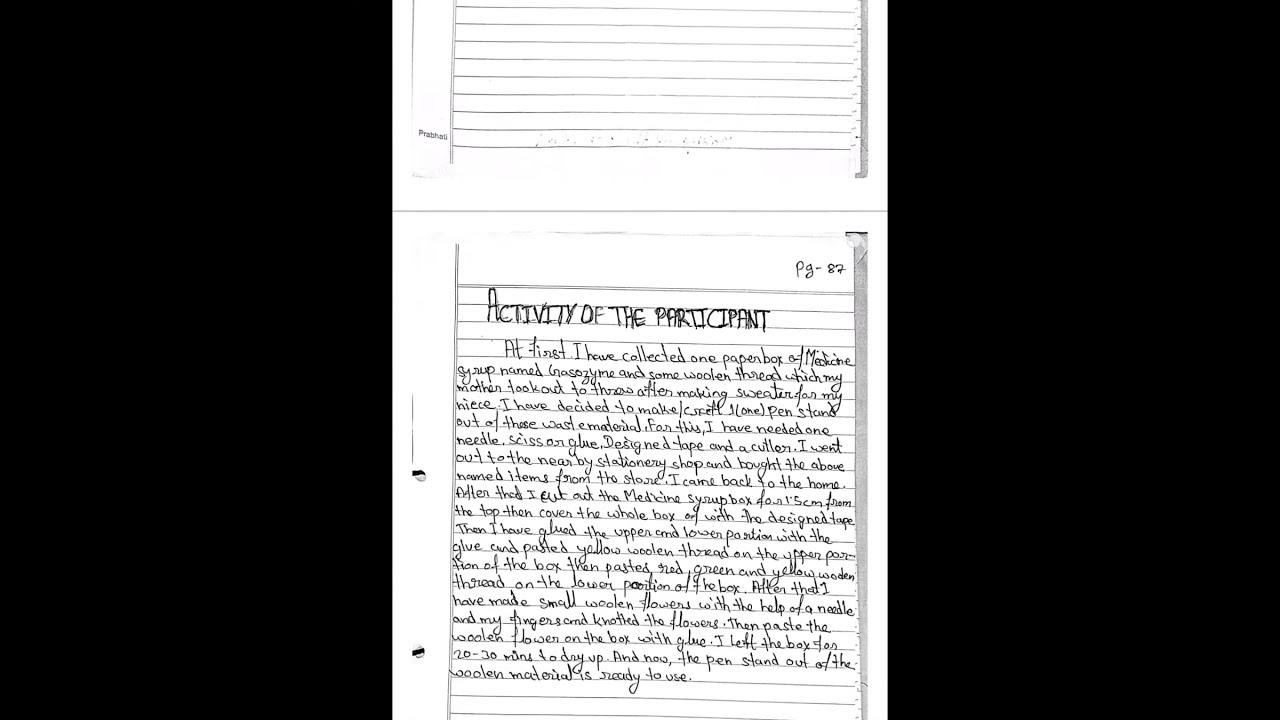 Prabhati
Pg- 87
ACTIVITY OF THE PARTICIPANT
At first I have collected one paperbox of Medicine
syrup named Grasozyme and some woolen thread which my
mother took out to throw after making sweater for my
niece. I have decided to make/craft 1(one) pen stand
out of those waste material. For this, I have needed one
needle, scissor glue. Designed tape and a cutter. I went
out to the near by stationery shop and bought the above
named items from the store. I came back to the home.
After that I cut out the Medicine syrup box for 1.5cm from
the top then cover the whole box of with the designed tape
Then I have glued the upper and lower portion with the
glue and pasted yallow woolen thread on the upper por-
tion of the box then pastes red, green and yellow woolen
thread on the lower poortion of the box. After that I
have made small woolen flowers with the help of a needle
and my fingers and knotted the flowers. Then paste the
woolen flower on the box with glue. I left the box for
20-30 mins to dry up. And now, the pen stand out of the
woolen material is ready to use.